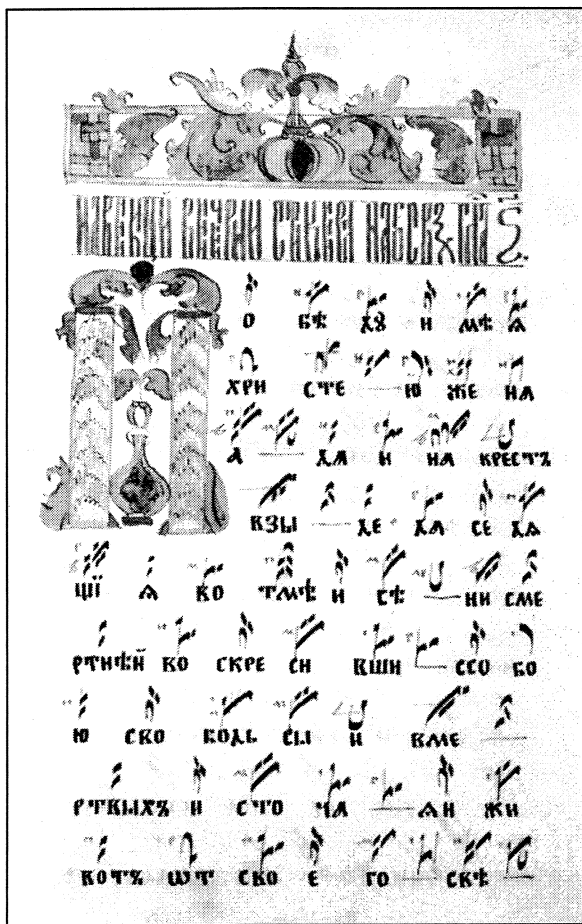 П О БѢ ДꙊ И МѢ Ѧ
ХРИ СТЕ Ю ЖЕ НА
А ДА И НА КРЕСТЪ
ВЗЫ ДЕ ДА СЕ ДѦ
ЩЇ Ѧ ВО ТМѢ И СѢ НИ СМЕ
РТНѢЙ ВО СКРЕ СИ ВШИ ССО БО
Ю СВО БОДЬ СЫ И ВМЕ
РТВЫХЪ И СТО ЧА ѦИ ЖИ
ВОТЪ ѠТ СВО Е ГО СВѢ